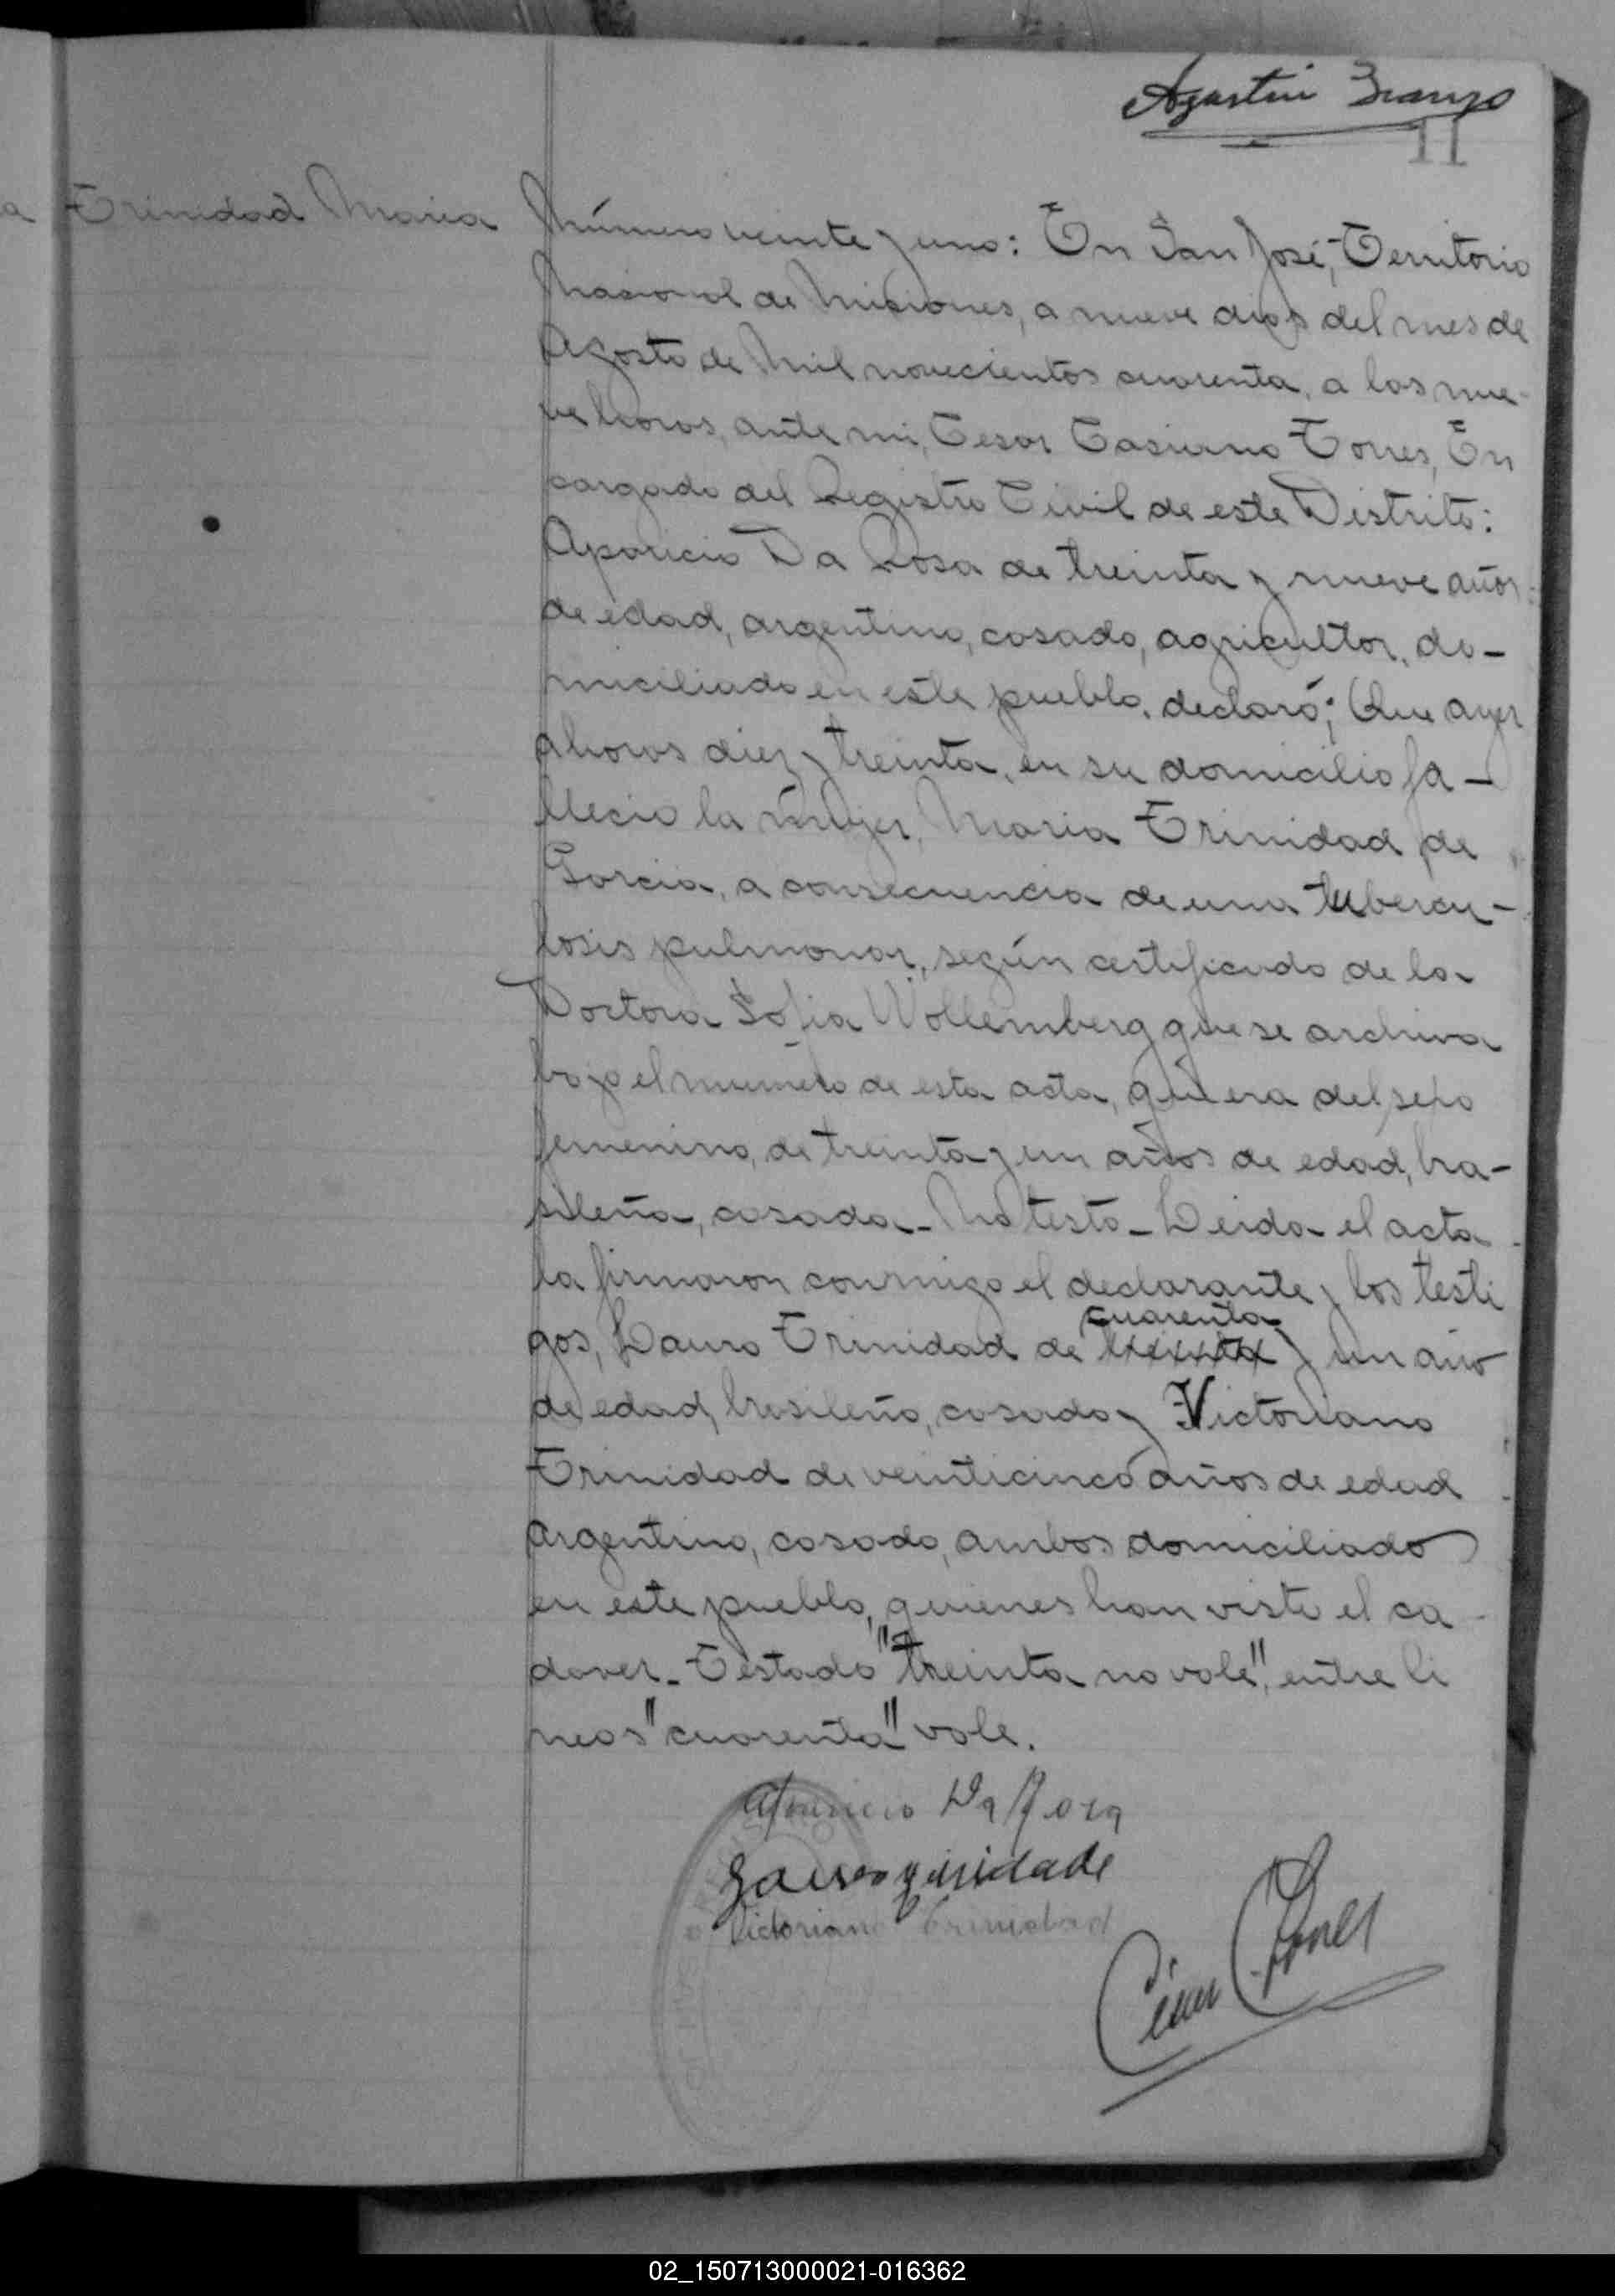 Agustin
11
Trinidad Maria
Número veinte y uno: En San José, Territorio
Nacional de Misiones, a nueve dias del mes de
Agosto de Mil novecientos cuarenta, a las nue-
ve horas, ante mi, Cesar Casiano Torres, En
cargado del Registro Civil de este Distrito:
Aparicio Da Rosa de treinta y nueve años
de edad, argentino, casado, agricultor, do-
miciliado en este pueblo, declaró; Que ayer
a horas diez y treinta, en su domicilio fa-
llecio la mujer, Maria Trinidad de
Garcia, a consecuencia de una tubercu-
losis pulmonar, según certificado de la
Doctora Sofia Wollemberg que se archiva
bajo el numero de esta acta, que era del sexo
femenino, de treinta y un años de edad, bra-
sileña, casada - No testo - Leida el acta
la firmaron conmigo el declarante y los testi
cuarenta
gos, Lauro Trinidad de treinta y un año
de edad, brasileño, casado y Victoriano
Trinidad de veinticinco años de edad
argentino, casado, ambos domiciliado
en este pueblo, quienes han visto el ca
daver - Testado "treinta no vale", entre li
neas "cuarenta" vale.
Aparicio Da Rosa
Lauro Trinidade
Victoriano Trinidad
César Torres
02_150713000021-016362